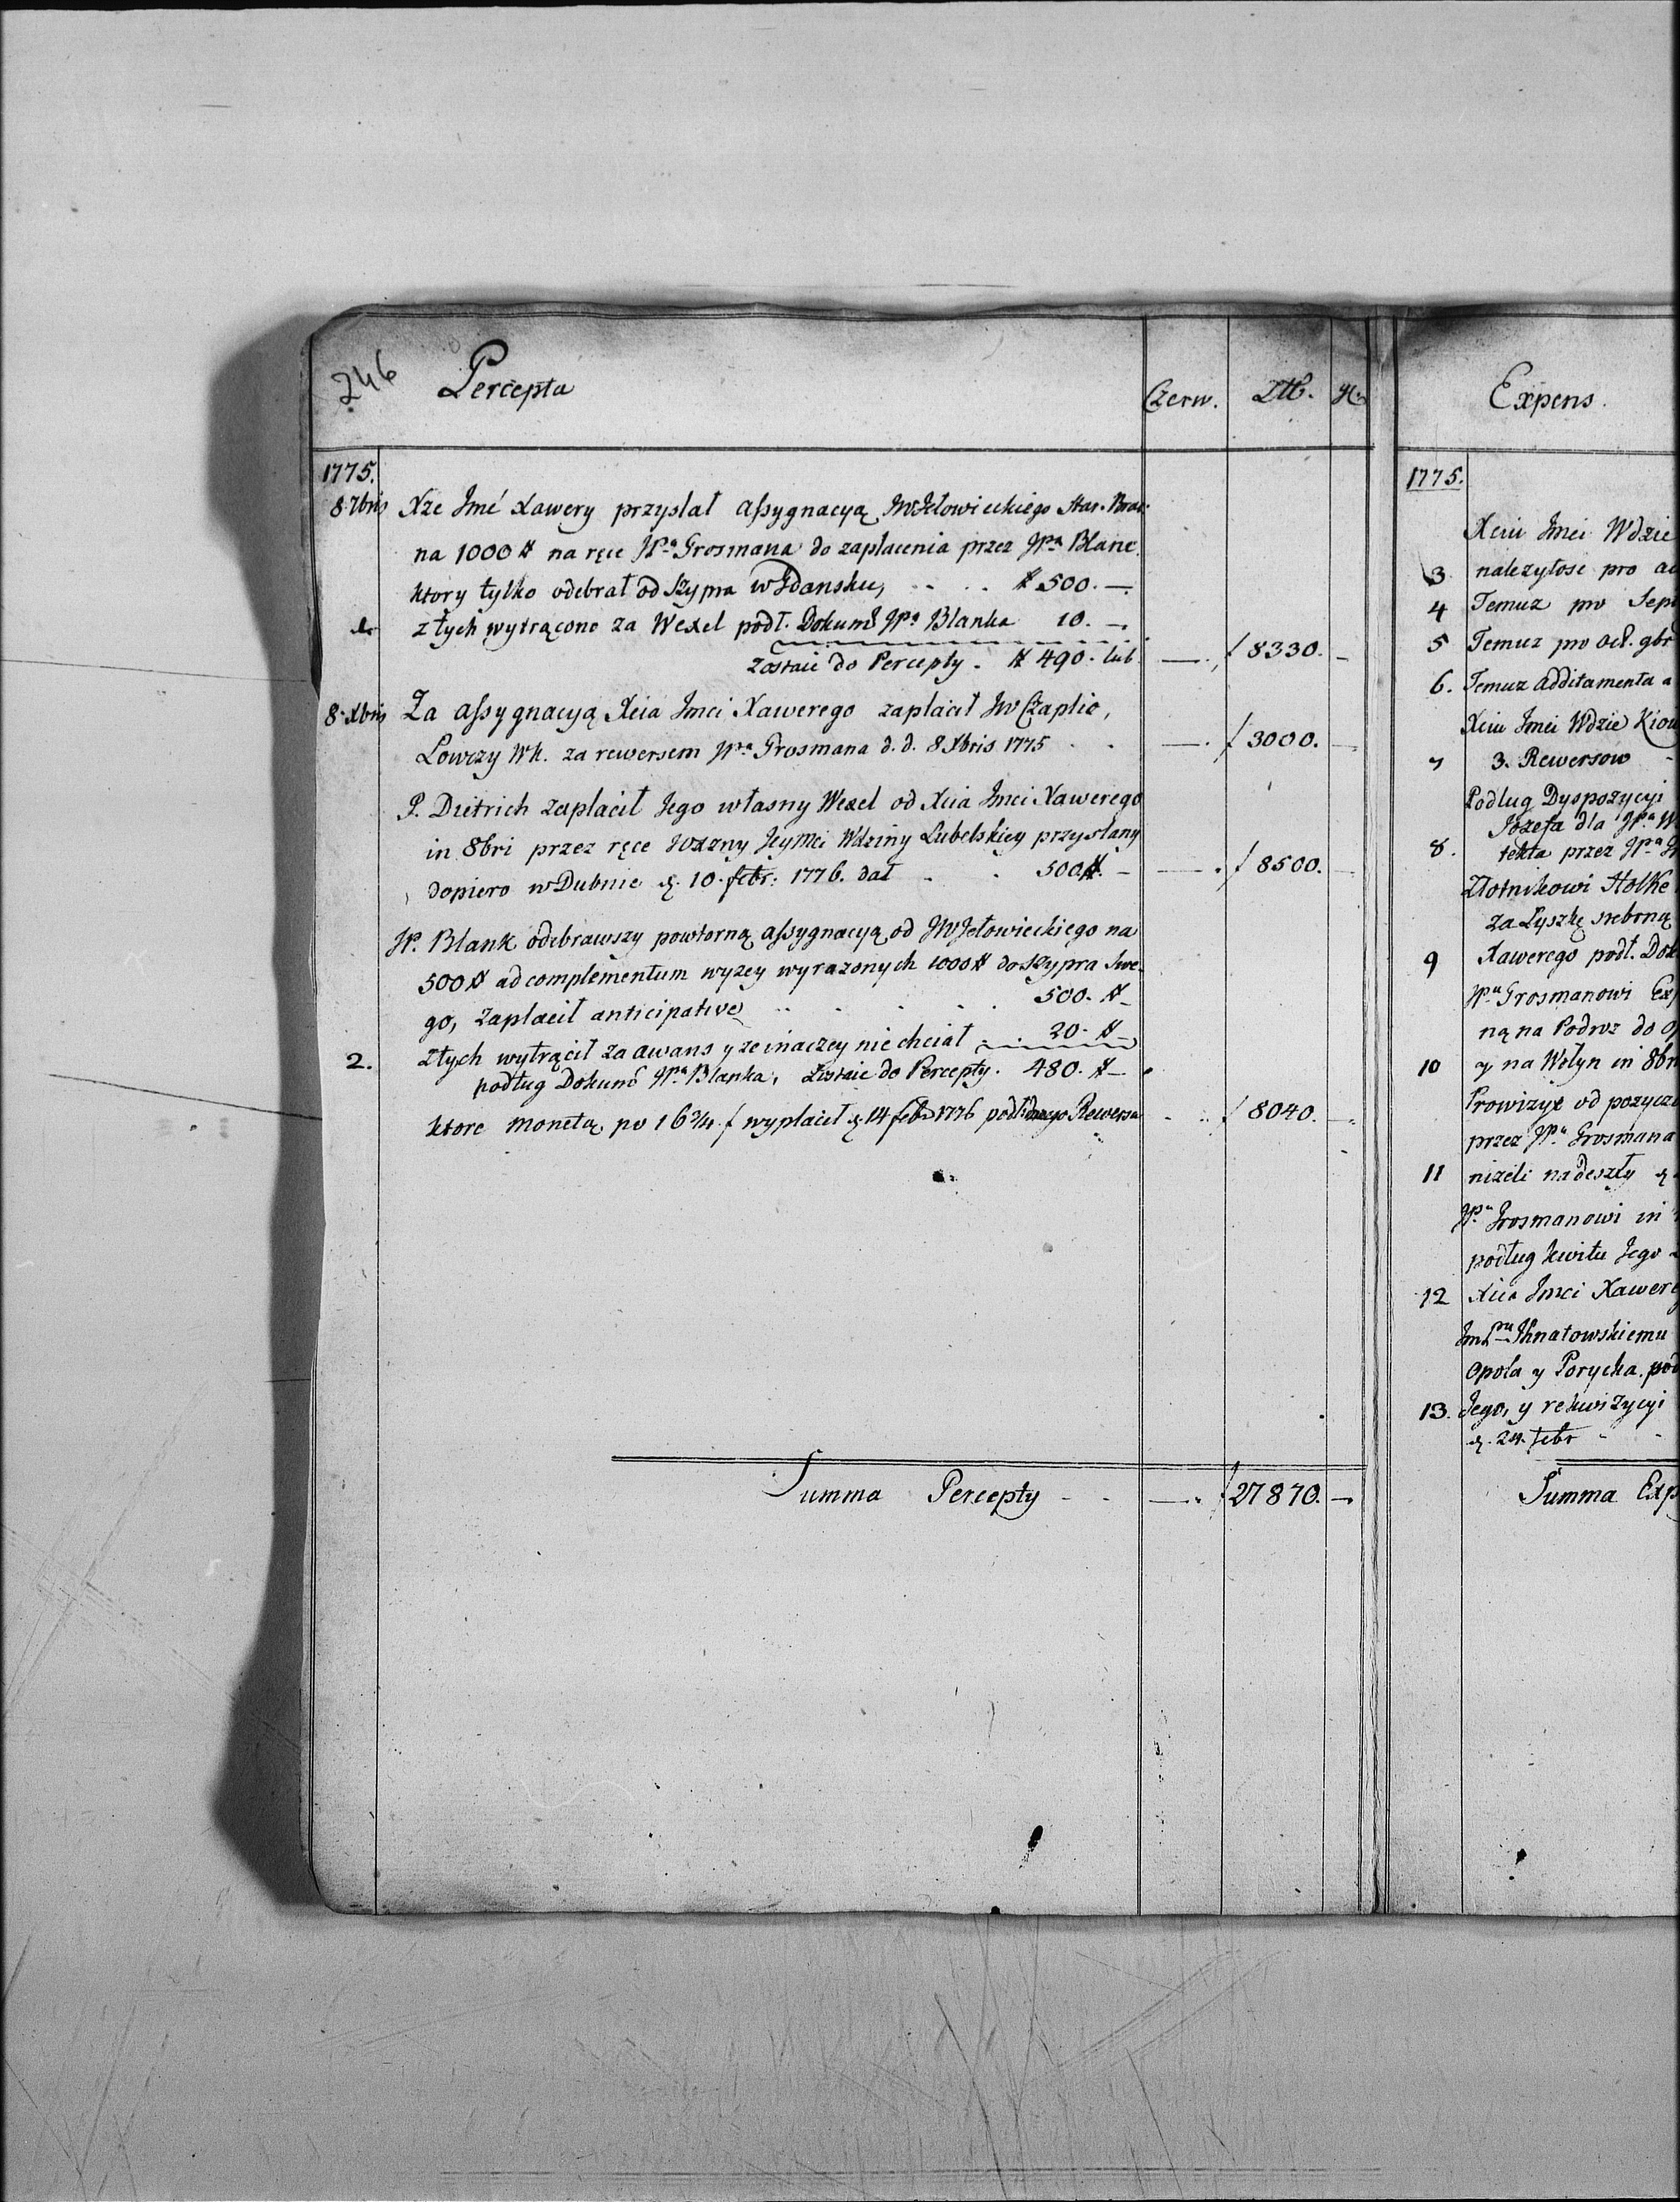 246 Percepta Czerw. Ztt. gr.
1775.
8 7bris Xże Jmć Xawery przysłał assygnacyą JWJełowickiego Star. Brac.
na 1000 # na ręce JPa Grosmana do zapłacenia przez JPa Blanc.
ktory tylko odebrał od Szypra w Gdansku, # 500. —
złych wytrącono za Wexel podł. Dokum. JPa Blanka 10. —
zostaie do Percepty. # 490. lub — f 8330. —
8. Xbris Za assygnacyą Xcia Jmci Xawerego zapłacił JW Czaplic,
Łowczy WK. za rewersem JPa Grosmana d. d. 8 Xbris 1775 — f 3000. —
P. Dietrich zapłacił Jego własny Wexel od Xcia Jmci Xawerego
in 8bri przez ręce JOXżny Jeymci Wdziny Lubelskiey przysłany
dopiero w Dubnie d. 10. febr. 1776. dał 500 #. — — f 8500. —
JP. Blank odebrawszy powtorną assygnacyą od JWJełowieckiego na
500 # ad complementum wyzey wyrazonych 1000 # do Szypra Swe-
go, zapłacił anticipative 500. # —
złych wytrącił za awans y ze inaczey nie chciał 20. # —
2. podług Dokum. JPa Blanka, Zostaie do Percepty. 480. # —
ktore monetą po 16 3/4 f wypłacił d. 14 febr 1776 podł. Rewersu f 8040. —
Summa Percepty — f 27870. —
Expens.
1775.
Xciu Jmci Wdzie
3 nalezytosc pro
4 Temuz pro Sep
5 Temuz pro oct. 9br
6. Temuz additamenta a
Xciu Jmci Wdzie Kiow
7 3. Rewersow
Podług Dyspozycyi
Jozefa dla JPa W
8. tekta przez JPa
Złotnikowi Holke
za Łyszkę srebrną
9 Xawerego podł. Dok
JPu Grosmanowi Ex
ną na Podroz do
10 y na Wołyn in 8br
Prowizye od pozycz
przez JPa Grosmana
11 nizeli nadeszły d.
JPu Grosmanowi in
podług kwitu Jego
12 Xcia Jmci Xawere
JmPu Ihnatowskiemu
Opola y Porycka. pod
13. Jego, y rekwizycyi
d. 24. febr
Summa Exp